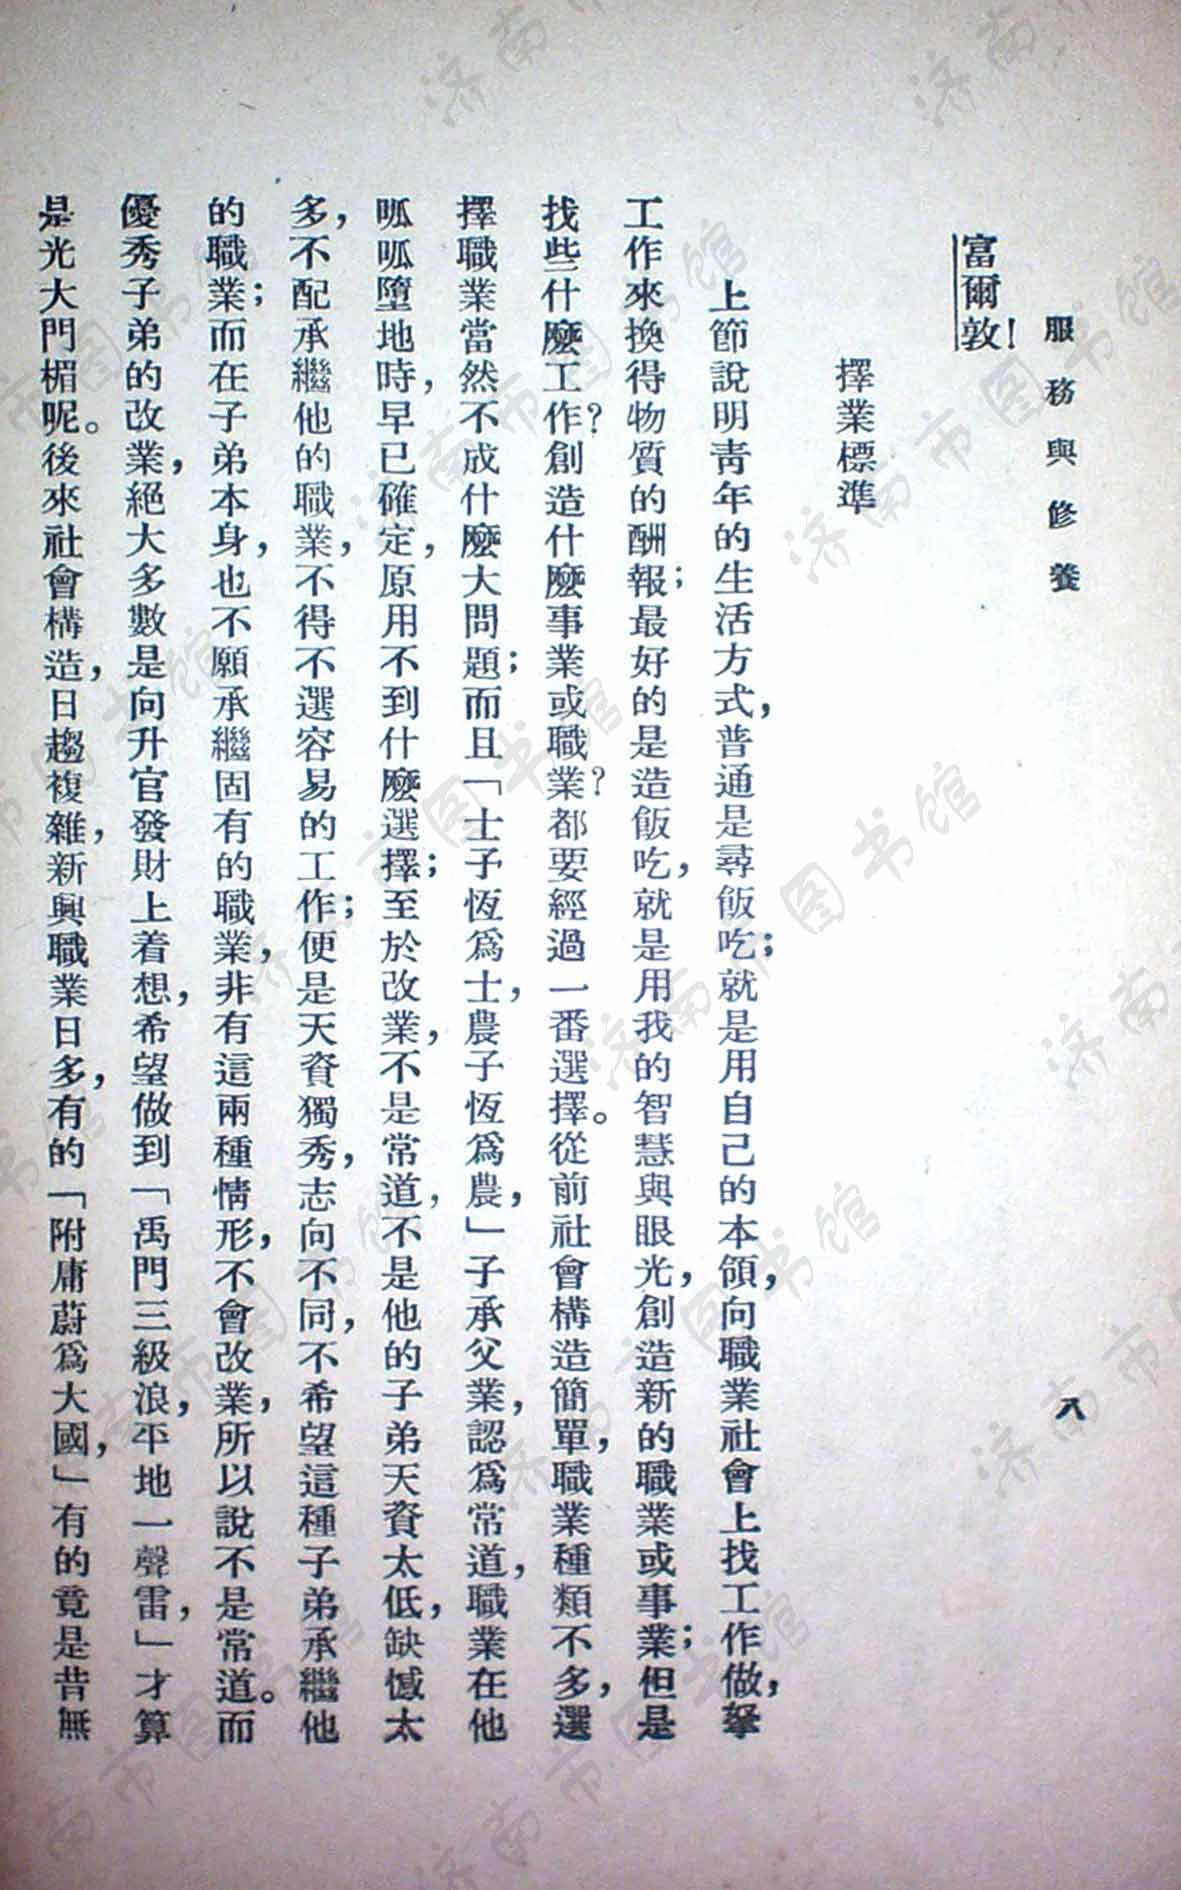 服務與修養
八
富爾敦!
擇業標準
上節說明青年的生活方式,普通是尋飯吃;就是用自己的本領,向職業社會上找工作做,拏
工作來換得物質的酬報;最好的是造飯吃,就是用我的智慧與眼光,創造新的職業或事業;但是
找些什麼工作?創造什麼事業或職業?都要經過一番選擇。從前社會構造簡單,職業種類不多,選
擇職業當然不成什麼大問題;而且「士子恆爲士,農子恆爲農,」子承父業,認爲常道,職業在他
呱呱墮地時,早已確定,原用不到什麼選擇;至於改業,不是常道,不是他的子弟天資太低,缺憾太
多,不配承繼他的職業,不得不選容易的工作;便是天資獨秀,志向不同,不希望這種子弟承繼他
的職業;而在子弟本身,也不願承繼固有的職業,非有這兩種情形,不會改業,所以說不是常道。而
優秀子弟的改業,絕大多數是向升官發財上着想,希望做到「禹門三級浪,平地一聲雷,」才算
是光大門楣呢。後來社會構造,日趨複雜,新興職業日多,有的「附庸蔚爲大國,」有的竟是昔無
濟南市图书馆